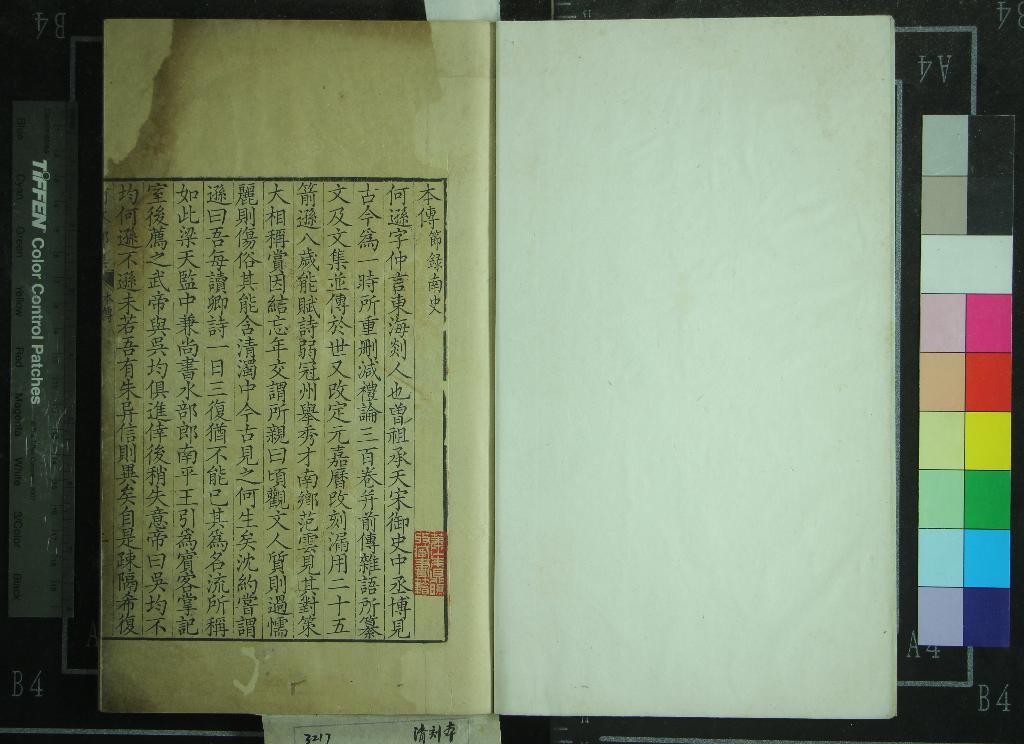 本傳節錄南史
何遜字仲言東海剡人也曾祖承天宋御史中丞博見
古今爲一時所重刪減禮論三百卷并前傳雜語所纂
文及文集並傳於世又改定元嘉曆改刻漏用二十五
箭遜八歲能賦詩弱冠州舉秀才南鄉范雲見其對策
大相稱賞因結忘年交謂所親曰頃觀文人質則過懦
麗則傷俗其能含清濁中今古見之何生矣沈約嘗謂
遜曰吾每讀卿詩一日三復猶不能已其爲名流所稱
如此梁天監中兼尚書水部郎南平王引爲賓客掌記
室後薦之武帝與吳均俱進倖後稍失意帝曰吳均不
均何遜不遜未若吾有朱异信則異矣自是疎隔希復
本傳
3217
清刻本
TIFFEN Color Control Patches
Blue
Cyan
Green
Yellow
Red
Magenta
White
3/Color
Black
B4
A4
B4
A4
B4